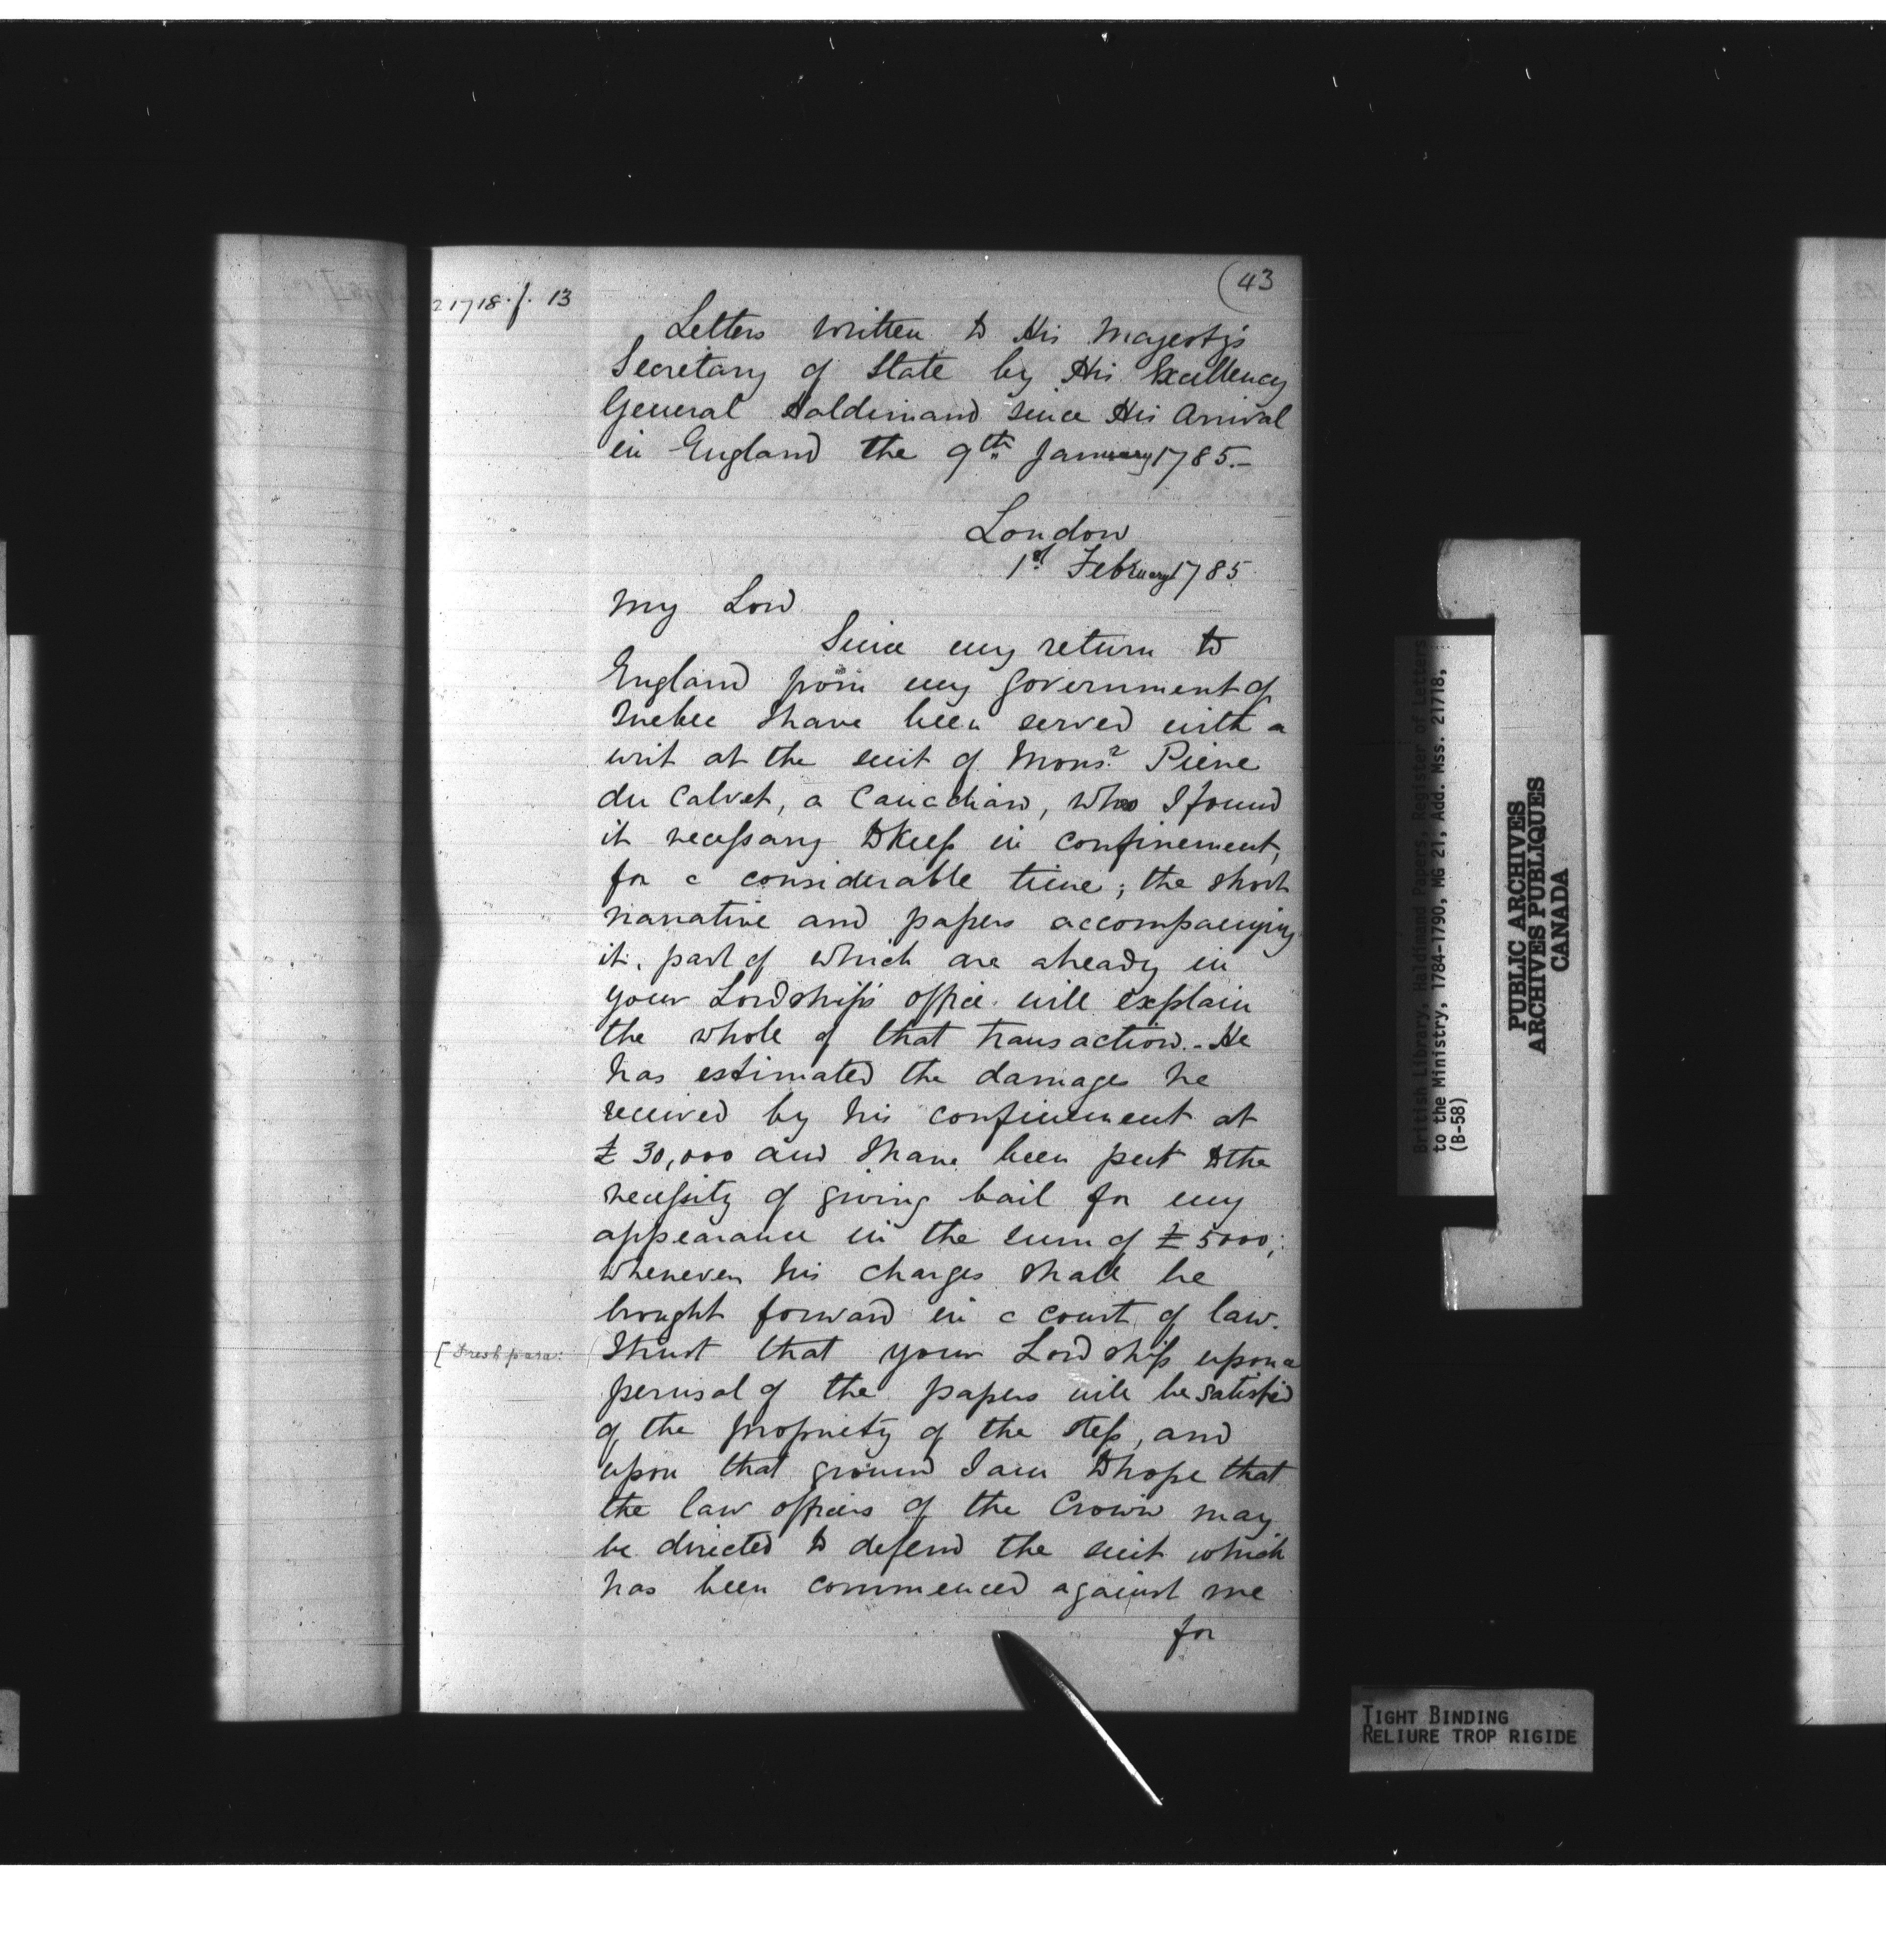 21718. f. 13
(43
Letters written to His Majesty's
Secretary of State by His Excellency
General Haldimand since His Arrival
in England the 9th January 1785.-
London
1st February 1785
My Lord
Since my return to
England from my Government of
Quebec I have been served with a
writ at the suit of Monsr Pierre
du Calvet, a Canadian, who I found
it necessary to keep in confinement,
for a considerable time; the short
narrative and papers accompanying
it, part of which are already in
your Lordship's office will explain
the whole of that transaction.- He
has estimated the damages he
received by his confinement at
£30,000 and I have been put to the
necessity of giving bail for my
appearance in the sum of £5000;
whenever his charges shall be
brought forward in a court of law.
[Fresh para:
I trust that your Lordship upon a
perusal of the papers will be satisfied
of the propriety of the step, and
upon that ground I am to hope that
the law officers of the Crown may
be directed to defend the suit which
has been commenced against me
for
British Library, Haldimand Papers, Register of Letters
to the Ministry, 1784-1790, MG 21, Add. Mss. 21718,
(B-58)
PUBLIC ARCHIVES
ARCHIVES PUBLIQUES
CANADA
TIGHT BINDING
RELIURE TROP RIGIDE